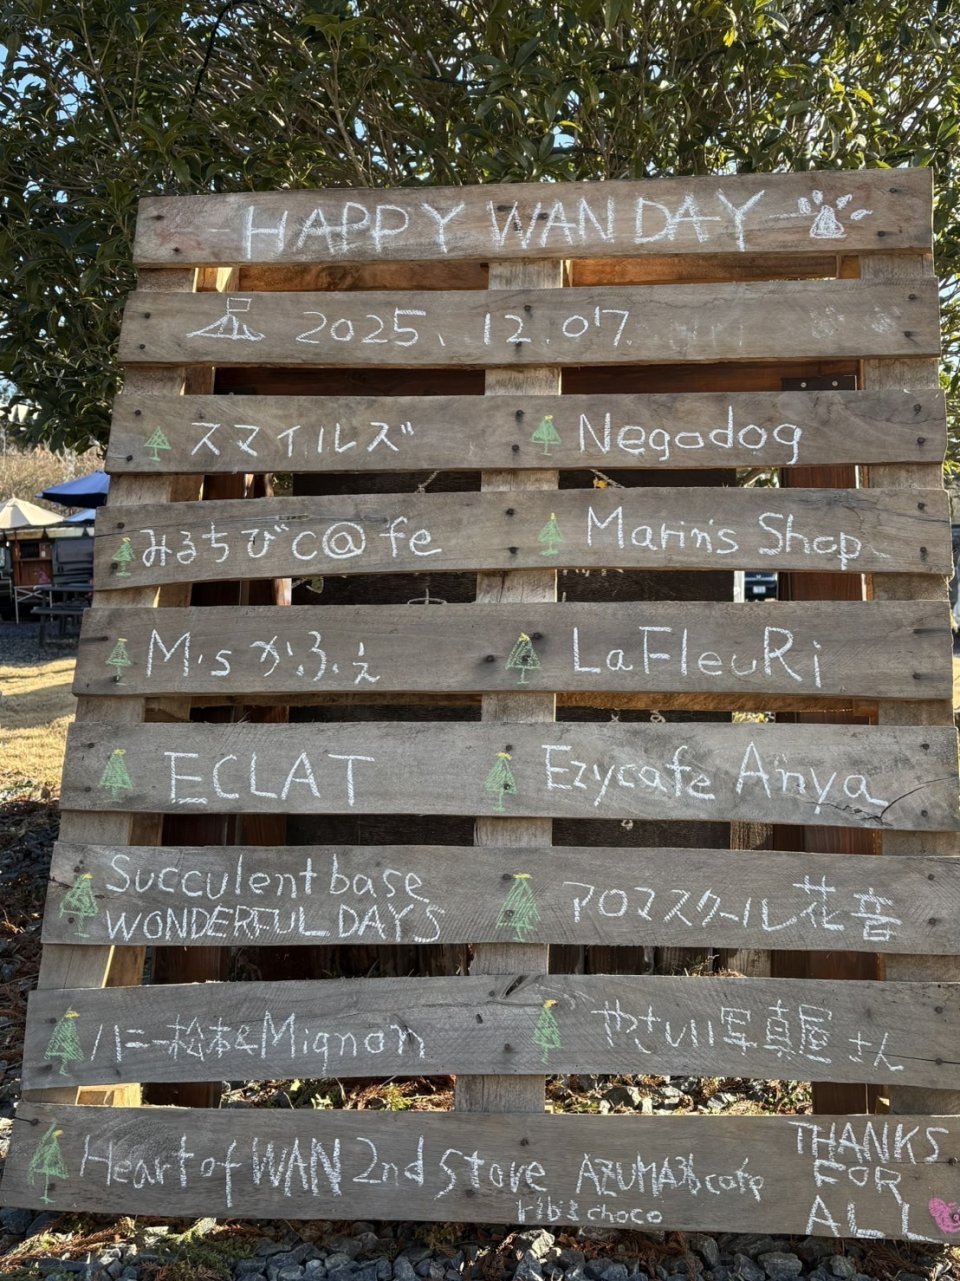 HAPPY WAN DAY
2025. 12. 07
スマイルズ Negodog
みるちびc@fe Marin's Shop
M's かふぇ LaFleuRi
ECLAT Ezycafe Anya
Succulent base
WONDERFUL DAYS アロマスクール花音
ハニー松本&Mignon やさしい写真屋さん
Heart of WAN 2nd Store AZUMA cafe
choco
THANKS
FOR
ALL